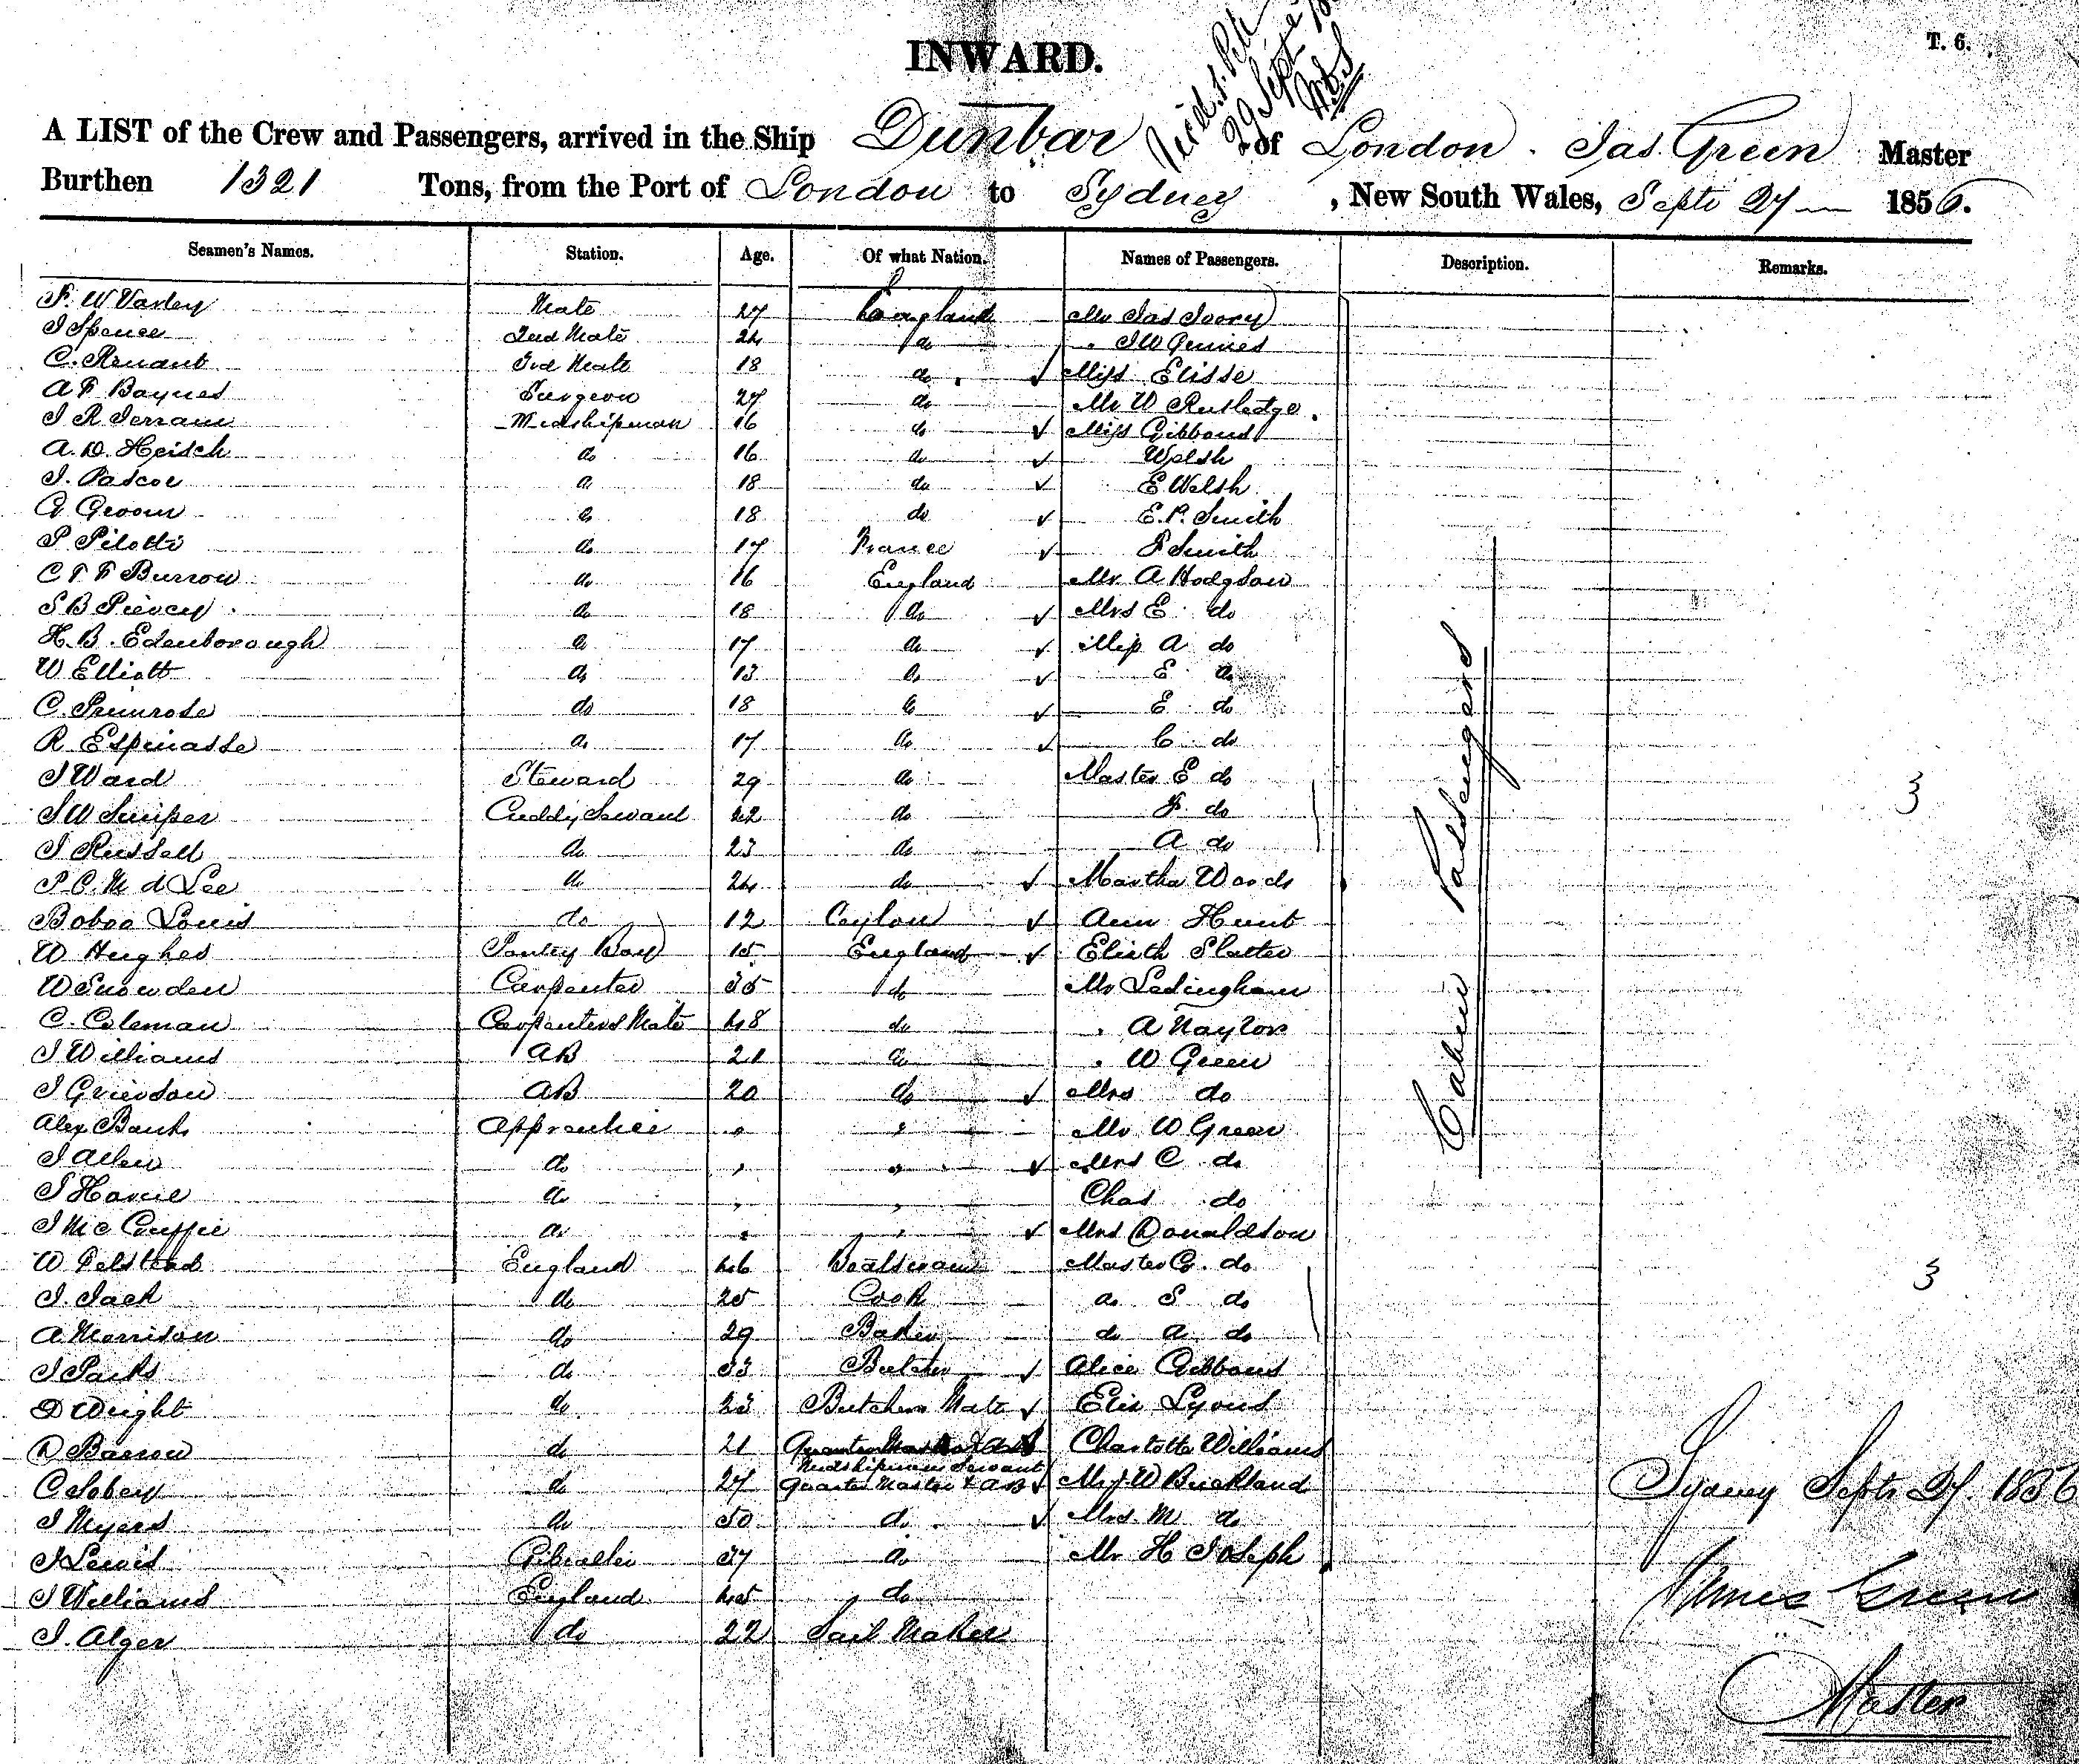 T. 6.
INWARD.
29 Sept
A LIST of the Crew and Passengers, arrived in the Ship Dunbar of London. Jas. Green Master
Burthen 1321 Tons, from the Port of London to Sydney, New South Wales, Septr 27 — 1856.
Seamen's Names. Station. Age. Of what Nation. Names of Passengers. Description. Remarks.
F. W Varley Mate 27 England Mr Jas Ivory
J Spence 2nd Mate 24 do " J W
C. 3rd Mate 18 do ✓ Miss Elisse
A F Baynes Surgeon 27 do Mr W Rutledge
J R Jerram Midshipman 16 do ✓ Miss Gibbons
A. D. Heisch do 16 do ✓ Welsh
J. Pascoe do 18 do ✓ E Welsh
G Groom do 18 do ✓ E. P. Smith
P Pilotti do 17 France ✓ F Smith
C T F Burrow do 16 England Mr A Hodgson
S B Piercy do 18 do ✓ Mrs E do
H. B. Edenborough do 17 do ✓ Miss A do
W Elliott do 13 do ✓ E do
C. Primrose do 18 do ✓ E do
R Espinasse do 17 do ✓ C do
J Ward Steward 29 do Master E do 3
J W Cuddy Servant 22 do F do
J Russell do 23 do A do
P. C. M d Lee do 24 do ✓ Martha Woods
Boboo Louis do 12 Ceylon ✓ Ann Hunt
W Hughes Pantry Boy 15 England ✓ Elizth Slatter
W Snowden Carpenter 35 do Mr Ledingham
C. Coleman Carpenters Mate 48 do " A Naylor
J Williams AB 21 do " W Green
J Grierson AB 20 do ✓ Mrs do
Alex Banks Apprentice " " Mr W Green
J Allen do " " ✓ Mrs C do
J do " " Chas do
J Mc Guffie do " " ✓ Mrs Donaldson
W Felstead England 46 Boatswain Master G. do 3
J. Jack do 25 Cook do S do
A Morrison do 29 Baker do A do
J Parks do 33 Butcher ✓ Alice Gibbons
D Wright do 23 Butchers Mate ✓ Eliz Lyons
D Barrow do 21 Quarter Master & AB Charlotte Williams
Midshipmans Servant
C Sobey do 27 Quarter Master & AB ✓ Mr J W Buckland
J Myers do 50 do ✓ Mrs M do
J Lewis Gibralter 37 do Mr H Joseph
J Williams England 45 do
J. Alger do 22 Sail Maker
Cabin Passengers
Sydney Septr 27. 1856
James Green
Master